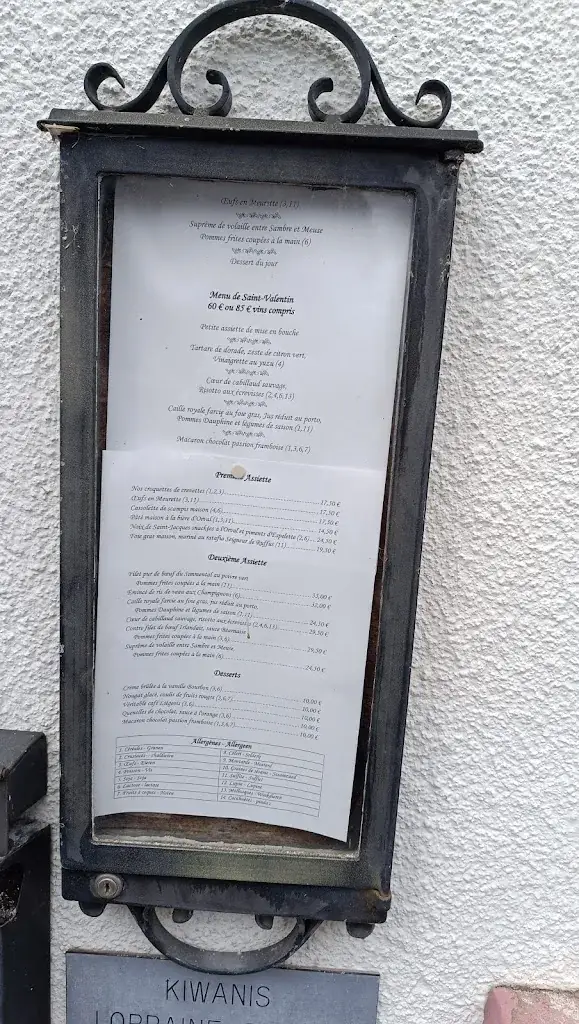 Œufs en Meurette (3,11)
Suprême de volaille entre Sambre et Meuse
Pommes frites coupées à la main (6)
Dessert du jour
Menu de Saint-Valentin
60 € ou 85 € vins compris
Petite assiette de mise en bouche
Tartare de dorade, zeste de citron vert,
Vinaigrette au yuzu (4)
Cœur de cabillaud sauvage,
Risotto aux écrevisses (2,4,6,13)
Caille royale farcie au foie gras, Jus réduit au porto,
Pommes Dauphine et légumes de saison (1,11)
Macaron chocolat passion framboise (1,3,6,7)
Assiette
Nos croquettes de crevettes (1,2,3) 17,50 €
Œufs en Meurette (3,11) 17,50 €
Cassolette de scampis maison (4,6) 17,50 €
Pâté maison à la bière d'Orval (1,3,11) 14,50 €
Noix de Saint-Jacques snackées à l'Orval et piments d'Espelette (2,6) 24,50 €
Foie gras maison, mariné au ratafia Seigneur de Ruffus (11) 19,50 €
Deuxième Assiette
Filet pur de bœuf du Simmental au poivre vert
Pommes frites coupées à la main 33,00 €
Émincé de ris de veau aux Champignons (6) 32,00 €
Caille royale farcie au foie gras, jus réduit au porto,
Pommes Dauphine et légumes de saison
Cœur de cabillaud sauvage, risotto aux écrevisses (2,4,6,13) 29,50 €
Contre filet de bœuf Islandais, sauce Béarnaise
Pommes frites coupées à la main (3,6) 29,50 €
Suprême de volaille entre Sambre et Meuse,
Pommes frites coupées à la main (6) 24,50 €
Desserts
Crème brûlée à la vanille Bourbon (3,6) 10,00 €
Nougat glacé, coulis de fruits rouges (3,6,7) 10,00 €
Véritable café Liégeois (3,6) 10,00 €
Quenelles de chocolat, sauce à l'orange (3,6) 10,00 €
Macaron chocolat passion framboise (1,3,6,7) 10,00 €
Allergènes - Allergeen
1. Céréales - Granen
2. Crustacés -
3. Œufs - Eieren
4. Poisson - Vis
5. Soja - Soja
6. Lactose - lactose
7. Fruits à coques - Noten
8. Céleri - Selderij
9. Moutarde - Mosterd
10. Graines de sésame - Sesamzaad
11. Sulfite - Sulfiet
12. Lupin - Lupine
13. Mollusques - Weekdieren
14. Cacahuètes -
KIWANIS
LORRAINE